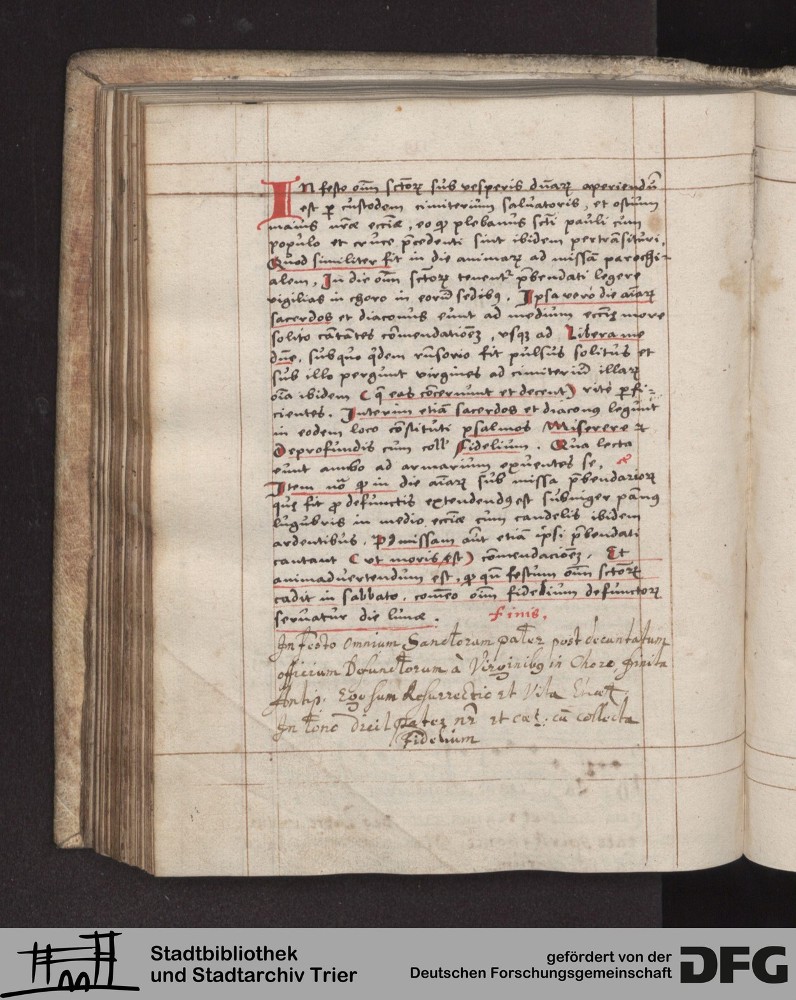 In festo oīm sctōrꝝ sub vesperis dn̄arꝝ aperiendū
est ꝑ custodem cimiterium saluatoris, et ostium
maius nr̄æ eccīæ, eo ꝙ plebanus scti pauli cum
populo et cruce p̄cedenti sint ibidem pertrāsituri.
Quod similiter fit in die animarꝝ ad missā parochi-
alem, In die oīm sctōrꝝ tenentʳ p̄bendati legere
vigilias in choro in eorūd sedibꝯ. Ipsa vero die aīarꝝ
sacerdos et diaconus eunt ad medium eccīȩ more
solito cātātes cōmendatioēꝫ, vsqꝫ ad Libera me
dn̄e, sub quo qͥdem rn̄sorio fit pulsus solitus et
sub illo pergunt virgines ad cimiteriū illarꝝ
oīa ibidem (q̄ eas cōcernunt et decent) rite ꝑfi-
cientes. Interim etiā sacerdos et diaconꝯ legūt
in eodem loco cōstituti psalmos Miserere et
Deprofundis cum coll' Fidelium. Qua lecta
eunt ambo ad armarium exuentes se.
Item nō ꝙ in die aīarꝝ sub missa p̄bendariorꝝ
quȩ fit ꝓ defunctis extendendꝯ est subniger pānꝯ
lugubris in medio eccīæ cum candelis ibidem
ardentibus. Pꝯ missam aūt etiā ipsi p̄bendati
cantant (vt moris est) cōmendacioēꝫ. Et
animaduertendum est, ꝙ qn̄ festum oīm sctōrꝝ
cadit in sabbato, cōmeō oīm fidelium defunctorꝝ
seruatur die lunæ. Finis.
In festo omnium Sanctorum pater post decantatum
officium Defunctorum à Virginibꝯ in Choro finita
Antip. Ego sum Resurrectio et Vita
In tono dicit Pater nr̄ et cæt. cū collecta
Fidelium
Stadtbibliothek
und Stadtarchiv Trier
gefördert von der
Deutschen Forschungsgemeinschaft
DFG